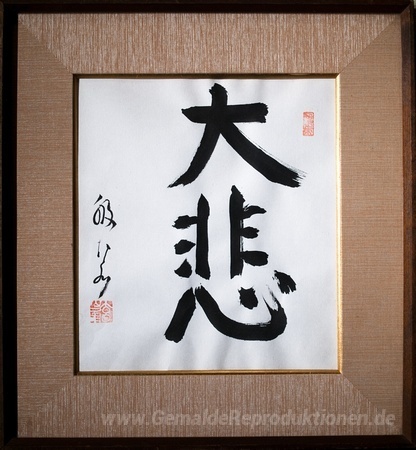 大悲
般若
www.GemaldeReproduktionen.de